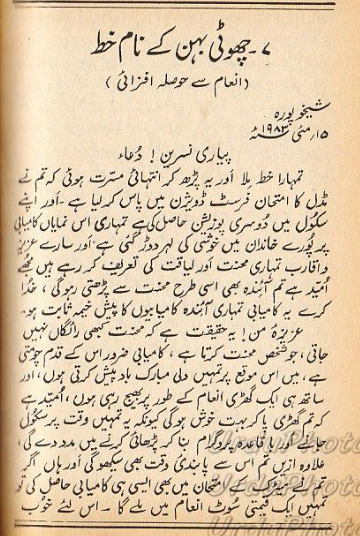 ۷۔ چھوٹی بہن کے نام خط
(انعام سے حوصلہ افزائی)
شیخوپورہ
۱۵ مئی ۱۹۸۳ء
پیاری نسرین! دُعاء
تمہارا خط ملا اور یہ پڑھ کر انتہائی مسرت ہوئی کہ تم نے
مڈل کا امتحان فرسٹ ڈویژن میں پاس کر لیا ہے۔ اور اپنے
سکول میں دُوسری پوزیشن حاصل کی ہے تمہاری اس نمایاں کامیابی
پر پُورے خاندان میں خوشی کی لہر دوڑ گئی ہے۔ اور سارے عزیز
و اقارب تمہاری محنت اور لیاقت کی تعریف کر رہے ہیں مجھے
اُمید ہے تم آئندہ بھی اسی طرح محنت سے پڑھتی رہو گی، خُدا
کرے یہ کامیابی تمہاری آئندہ کامیابیوں کا پیش خیمہ ثابت ہو۔
عزیزۂ من! یہ حقیقت ہے کہ محنت کبھی رائگاں نہیں
جاتی، جو شخص محنت کرتا ہے، کامیابی ضرور اس کے قدم چومتی
ہے، میں اس موقع پر تمہیں دلی مبارک باد پیش کرتی ہوں، اور
ساتھ ہی ایک گھڑی انعام کے طور پر بھیج رہی ہوں، اُمید ہے
کہ تم گھڑی پا کر بہت خوش ہو گی کیونکہ یہ تمہیں وقت پر سکول
جانے اور باقاعدہ پروگرام بنا کر پڑھائی کرنے میں مدد دے گی،
علاوہ ازیں تم اس سے پابندئ وقت بھی سیکھو گی اور ہاں اگر
تم نے میٹرک کے امتحان میں بھی ایسی ہی کامیابی حاصل کی تو
تمہیں ایک قیمتی سُوٹ انعام میں ملے گا۔ اس لئے خوب
UrduPhoto
UrduPhoto
UrduPhoto